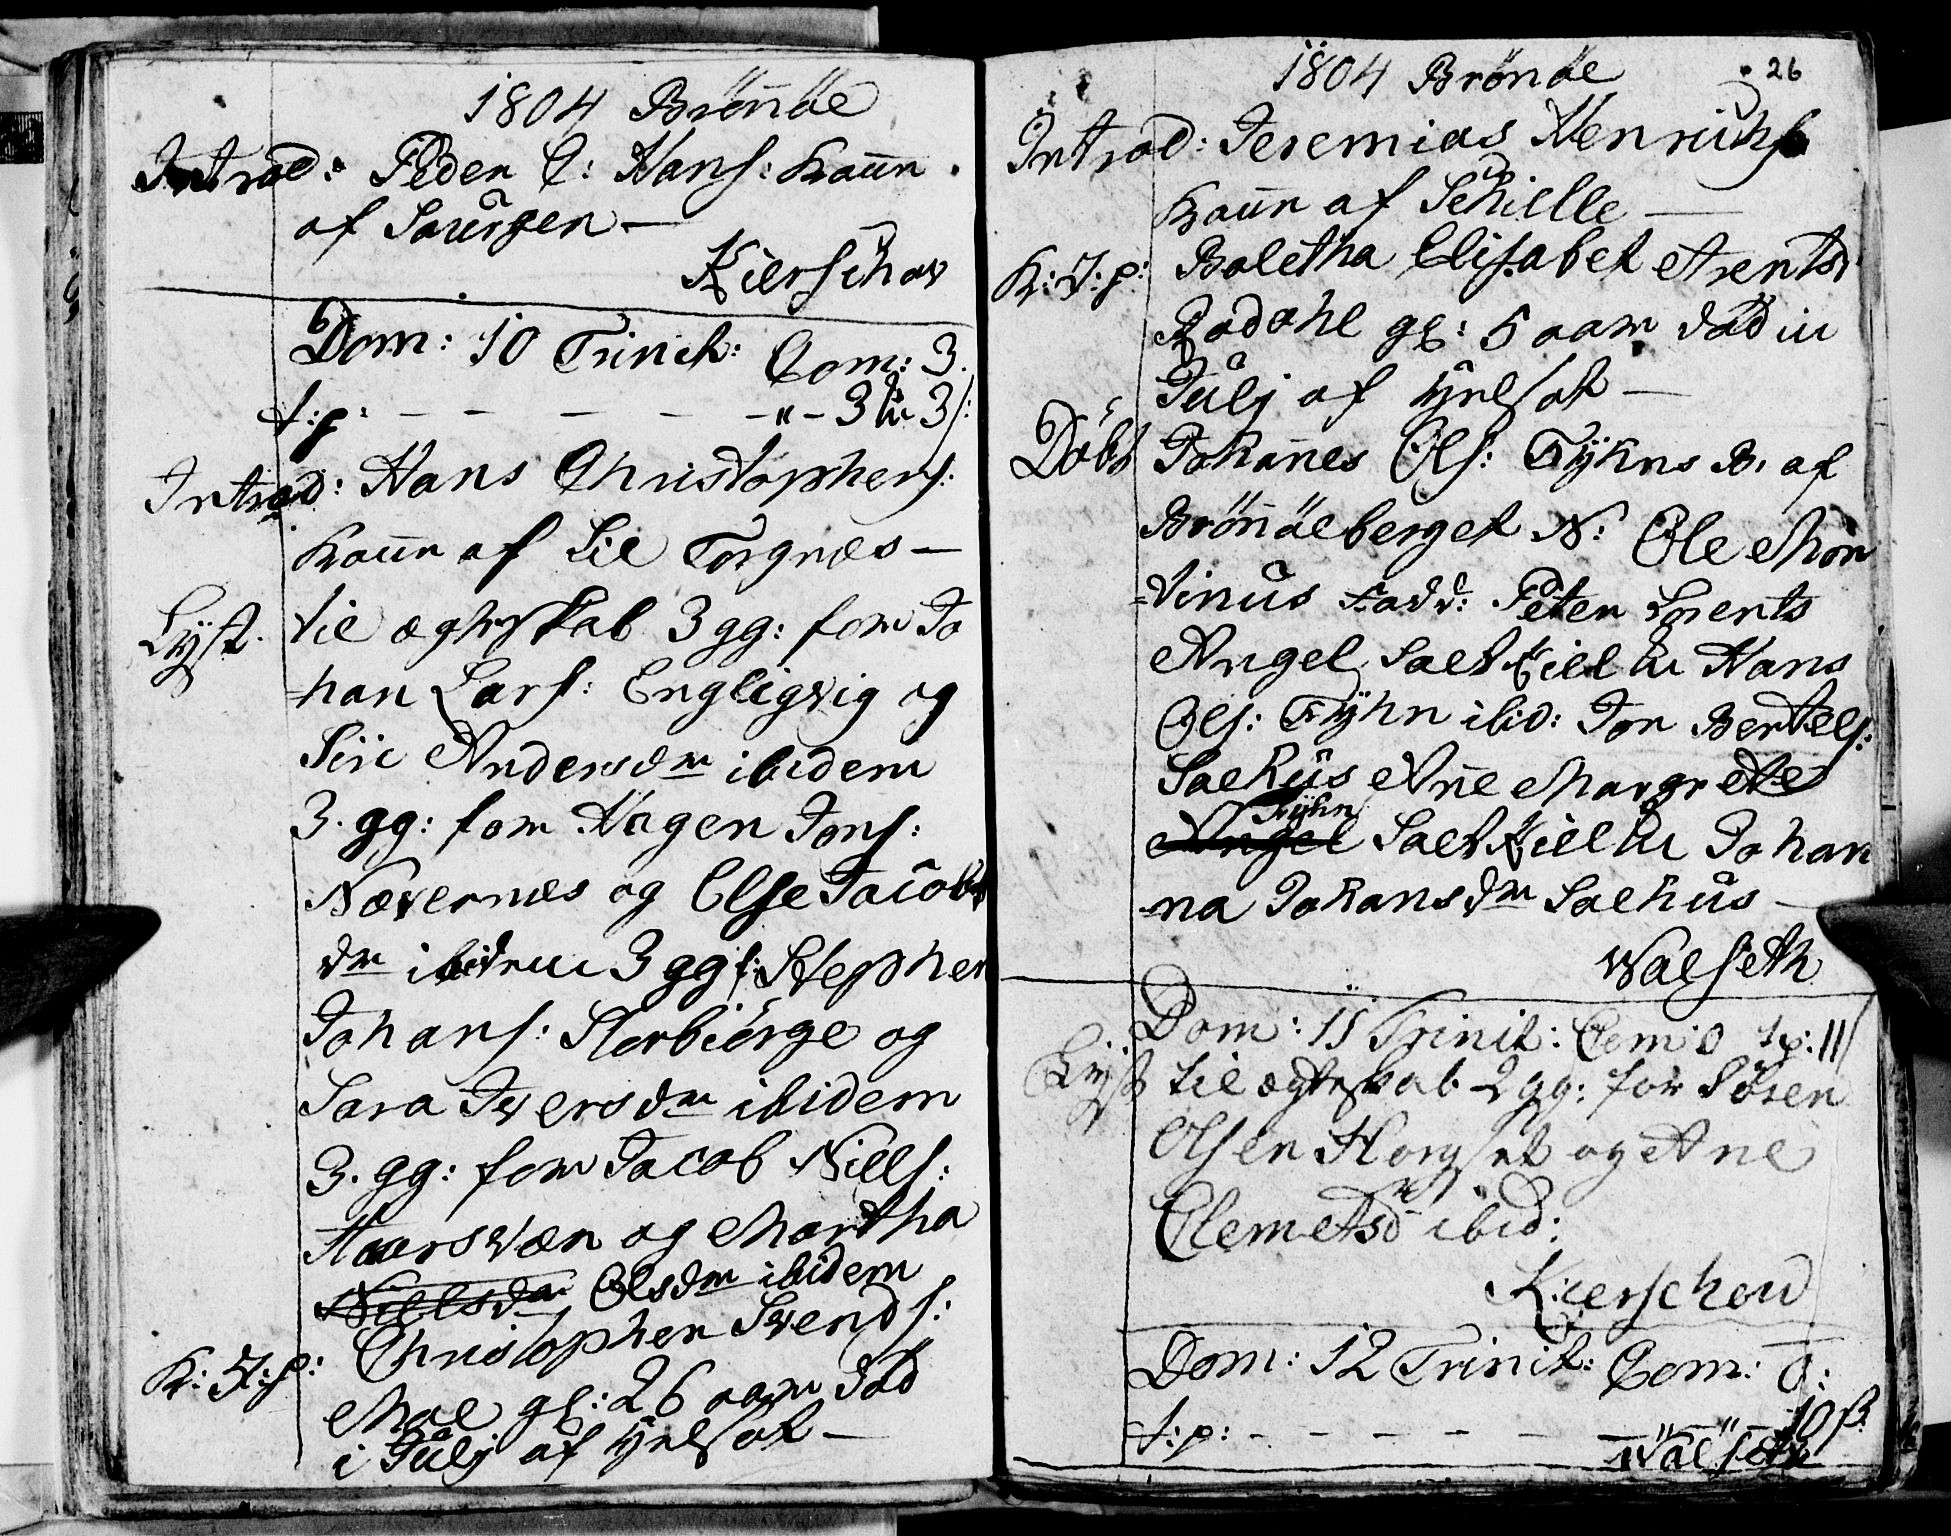 1804 Brönöe
Introd: Peder C: Hans: Kaun
af Saursen —
Kierschow
Dom: 10 Trinit: Com: 3.
t:p: — — — — — " — 3 3 s:
Introd: Hans Christophers:
Kaun af Lil Torgnæs —
Lyst. til ægteskab 3 gg: for Jo
han Lars: Engligvig og
Siri Andersdr ibidem
3. gg: for Hagen Jons:
Nævernæs og Else Jacobs
dr ibidem 3 gg f: Stephen
Johans: Storbiörge og
Sara Iversdr ibidem
3. gg: for Jacob Niels:
Haarsvæn og Martha
Nielsdr Olsdr ibidem
K: J: p: Christopher Svends:
Moe gl: 26 aar død
i Julj af
1804 Brönöe 26
Introd: Jeremias Henrichs
Kaun af Schille —
K: J: p: Boletha Elisabet Arentsd
Rodahl gl: 5 aar død in
Julj af
Döbt Johannes Ols: Fÿhns B. af
Brönöeberget N: Ole Mor
tinus Fadd: Peter Lorents
Angel Saltkiel Hans
Ols: Fÿhn ibid: Jon Bertels:
Saehus Ane Margrete
Fÿhn
Angel Saltkiel Johan
na Johansdr Saehus —
Walseth
Dom: 11 Trinit: Com: 0 tp: 11
Lyst til ægteskab 2 gg: for Sören
Olsen Horgset og Ane
Clemetsdr ibid:
Kierschow
Dom: 12 Trinit: Com: 0:
t:p: — — — — — " " — 10 ß
Walseth